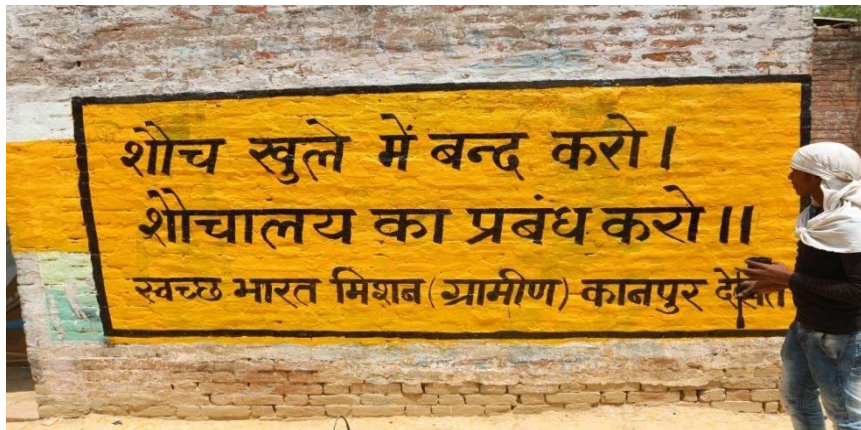 शौच खुले में बन्द करो।
शौचालय का प्रबंध करो॥
स्वच्छ भारत मिशन (ग्रामीण) कानपुर